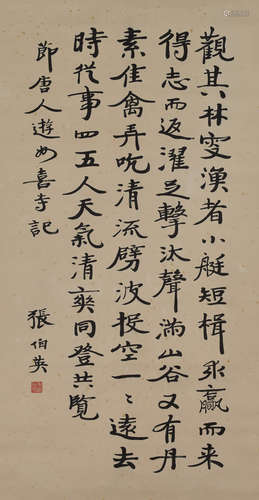 觀其林叟漁者小艇短楫承贏而来
得志而返濯足擊汰聲滿山谷又有丹
素佳禽弄吭清流劈波投空一〻遠去
時從事四五人天氣清爽同登共覽
節唐人遊妙喜寺記
張伯英